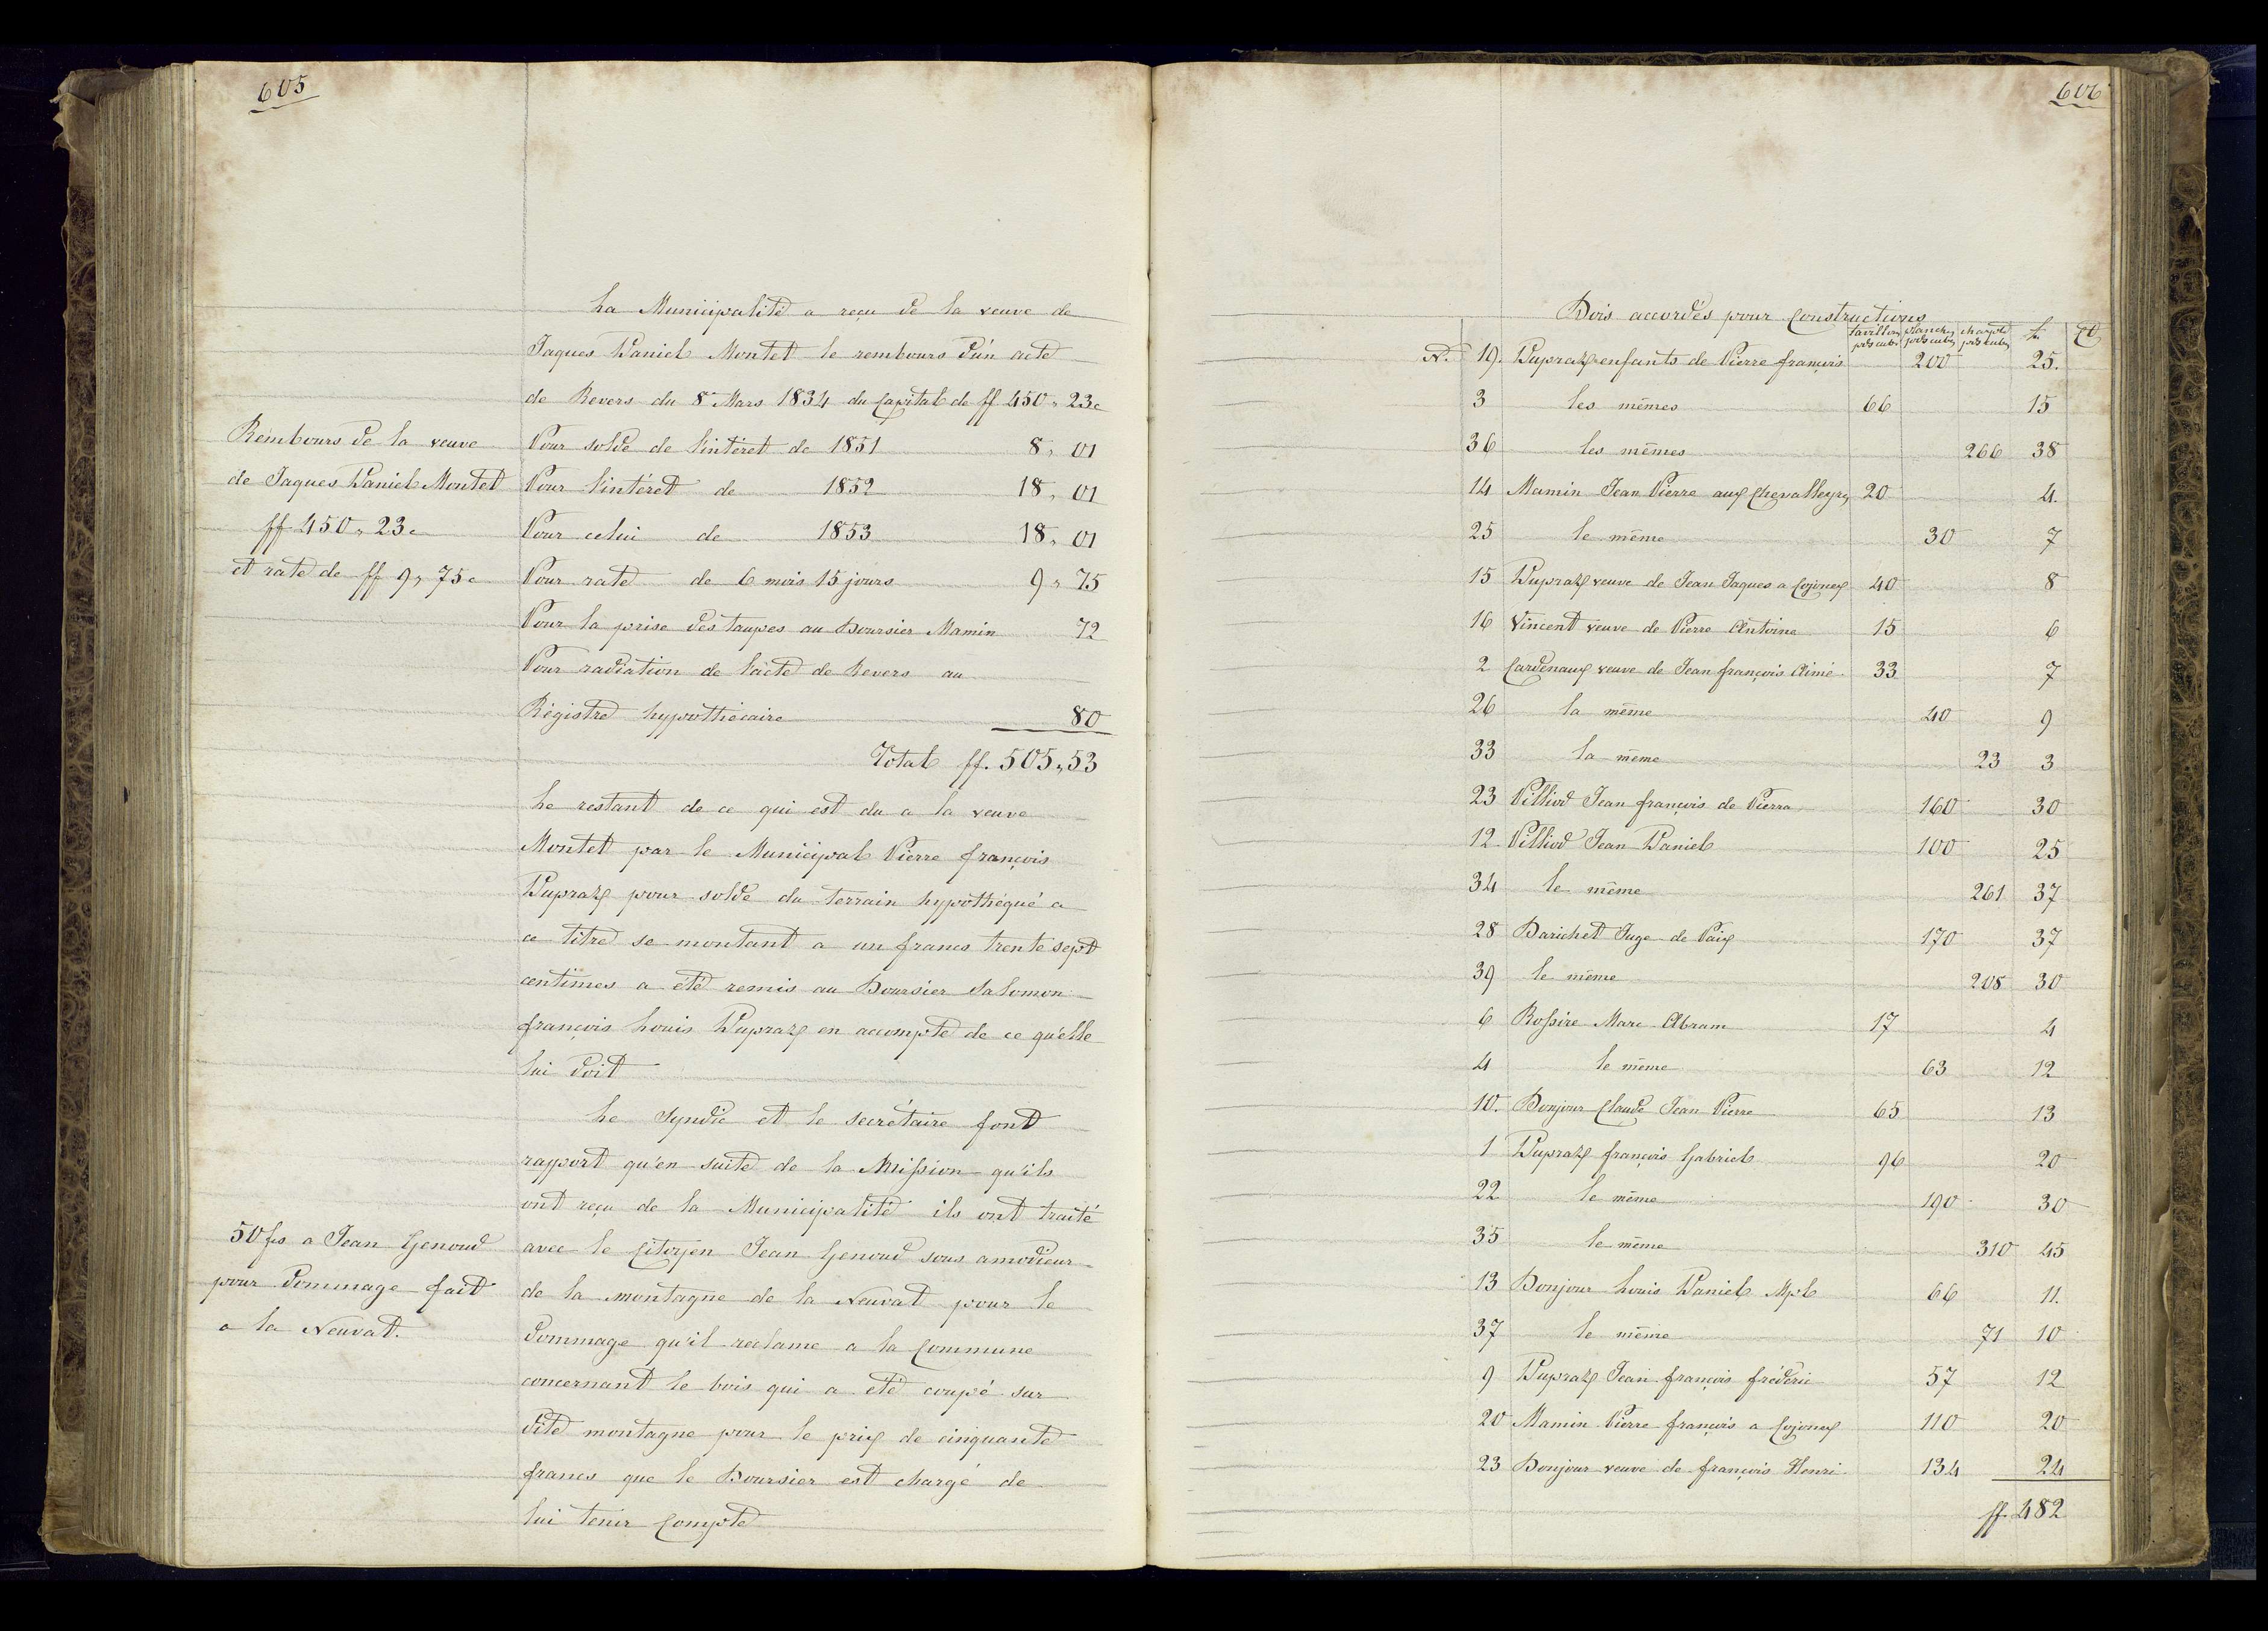 605
La Municipalité a reçu de la veuve de
Jaques Daniel Montet le rembours d'un acte
de Revers du 8 Mars 1834 du Capital de ff 450 " 23 c
Rembours de la veuve
de Jaques Daniel Montet
ff 450 " 23 c
et rate de ff 9 " 75 c
Pour solde de l'intéret de 1851 8 " 01
Pour l'intéret de 1852 18 " 01
Pour celui de 1853 18 " 01
Pour rate de 6 mois 15 jours 9 " 75
Pour la prise des taupes au Boursier Mamin 72
Pour radiation de l'acte de Revers au
Régistre hypothécaire 80
Total ff. 505 " 53
Le restant de ce qui est du a la veuve
Montet par le Municipal Pierre françois
Dupraz pour solde du terrain hypothéqué a
ce titre se montant a un francs trente sept
centimes a été remis au Boursier Salomon
françois Louis Dupraz en accompte de ce qu'elle
lui doit
Le Syndic et le secrétaire font
rapport qu'en suite de la Mission qu'ils
ont reçu de la Municipalité ils ont traité
50 fs a Jean Genoud
pour dommage fait
a la Neuvat.
avec le Citoyen Jean Genoud sous amodieur
de la montagne de la Neuvat pour le
dommage qu'il reclame a la Commune
concernant le bois qui a été coupé sur
dite montagne pour le prix de cinquante
francs que le Boursier est chargé de
lui tenir Compte
606
Bois accordés pour Constructions
tavillons pds cubes planches pds cubes charpte pds cubes f. Ct
N. 19. Dupraz enfants de Pierre françois 200 25.
3 les mêmes 66 15
36 les mêmes 266 38
14 Mamin Jean Pierre aux Chevalleyres 20 4.
25 le même 30 7
15 Dupraz veuve de Jean Jaques a Cojonex 40 8
16 Vincent veuve de Pierre Antoine 15 6
2 Cardenaux veuve de Jean françois Aimé 33 7
26 la même 40 9
33 la même 23 3
23 Pilliod Jean françois de Pierra 160 30
12 Pilliod Jean Daniel 100 25
34 le même 261 37
28 Barichet Juge de Paix 170 37
39 le même 208 30
6 Rossire Marc Abram 17 4
4 le même 63 12
10. Bonjour Claude Jean Pierre 65 13
1 Dupraz françois Gabriel 96 20
22 le même 190 30
35 le même 310 45
13 Bonjour Louis Daniel Mpl 66 11.
37 le même 71 10
9 Dupraz Jean françois fréderic 57 12
20 Mamin Pierre françois a Cojonex 110 20
23 Bonjour veuve de françois Henri 134 24
ff 482